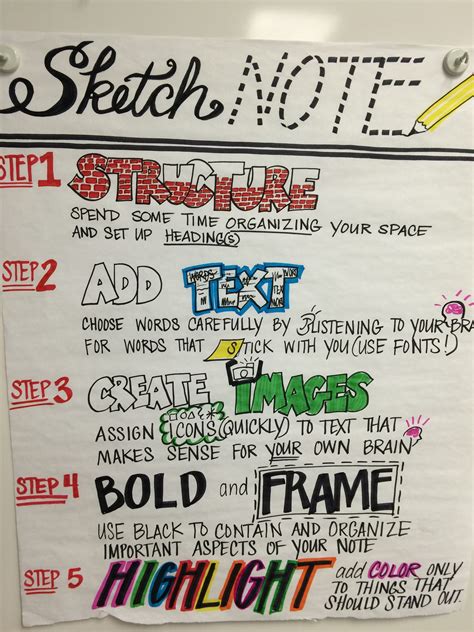 Sketch NOTE
STEP1 STRUCTURE
SPEND SOME TIME ORGANIZING YOUR SPACE
AND SET UP HEADING(S)
STEP 2 ADD TEXT
CHOOSE WORDS CAREFULLY BY LISTENING TO YOUR BRAIN
FOR WORDS THAT STICK WITH YOU (USE FONTS!)
STEP 3 CREATE IMAGES
ASSIGN ICONS (QUICKLY) TO TEXT THAT
MAKES SENSE FOR YOUR OWN BRAIN
STEP 4 BOLD and FRAME
USE BLACK TO CONTAIN AND ORGANIZE
IMPORTANT ASPECTS OF YOUR NOTE
STEP 5 HIGHLIGHT add COLOR ONLY
TO THINGS THAT
SHOULD STAND OUT.